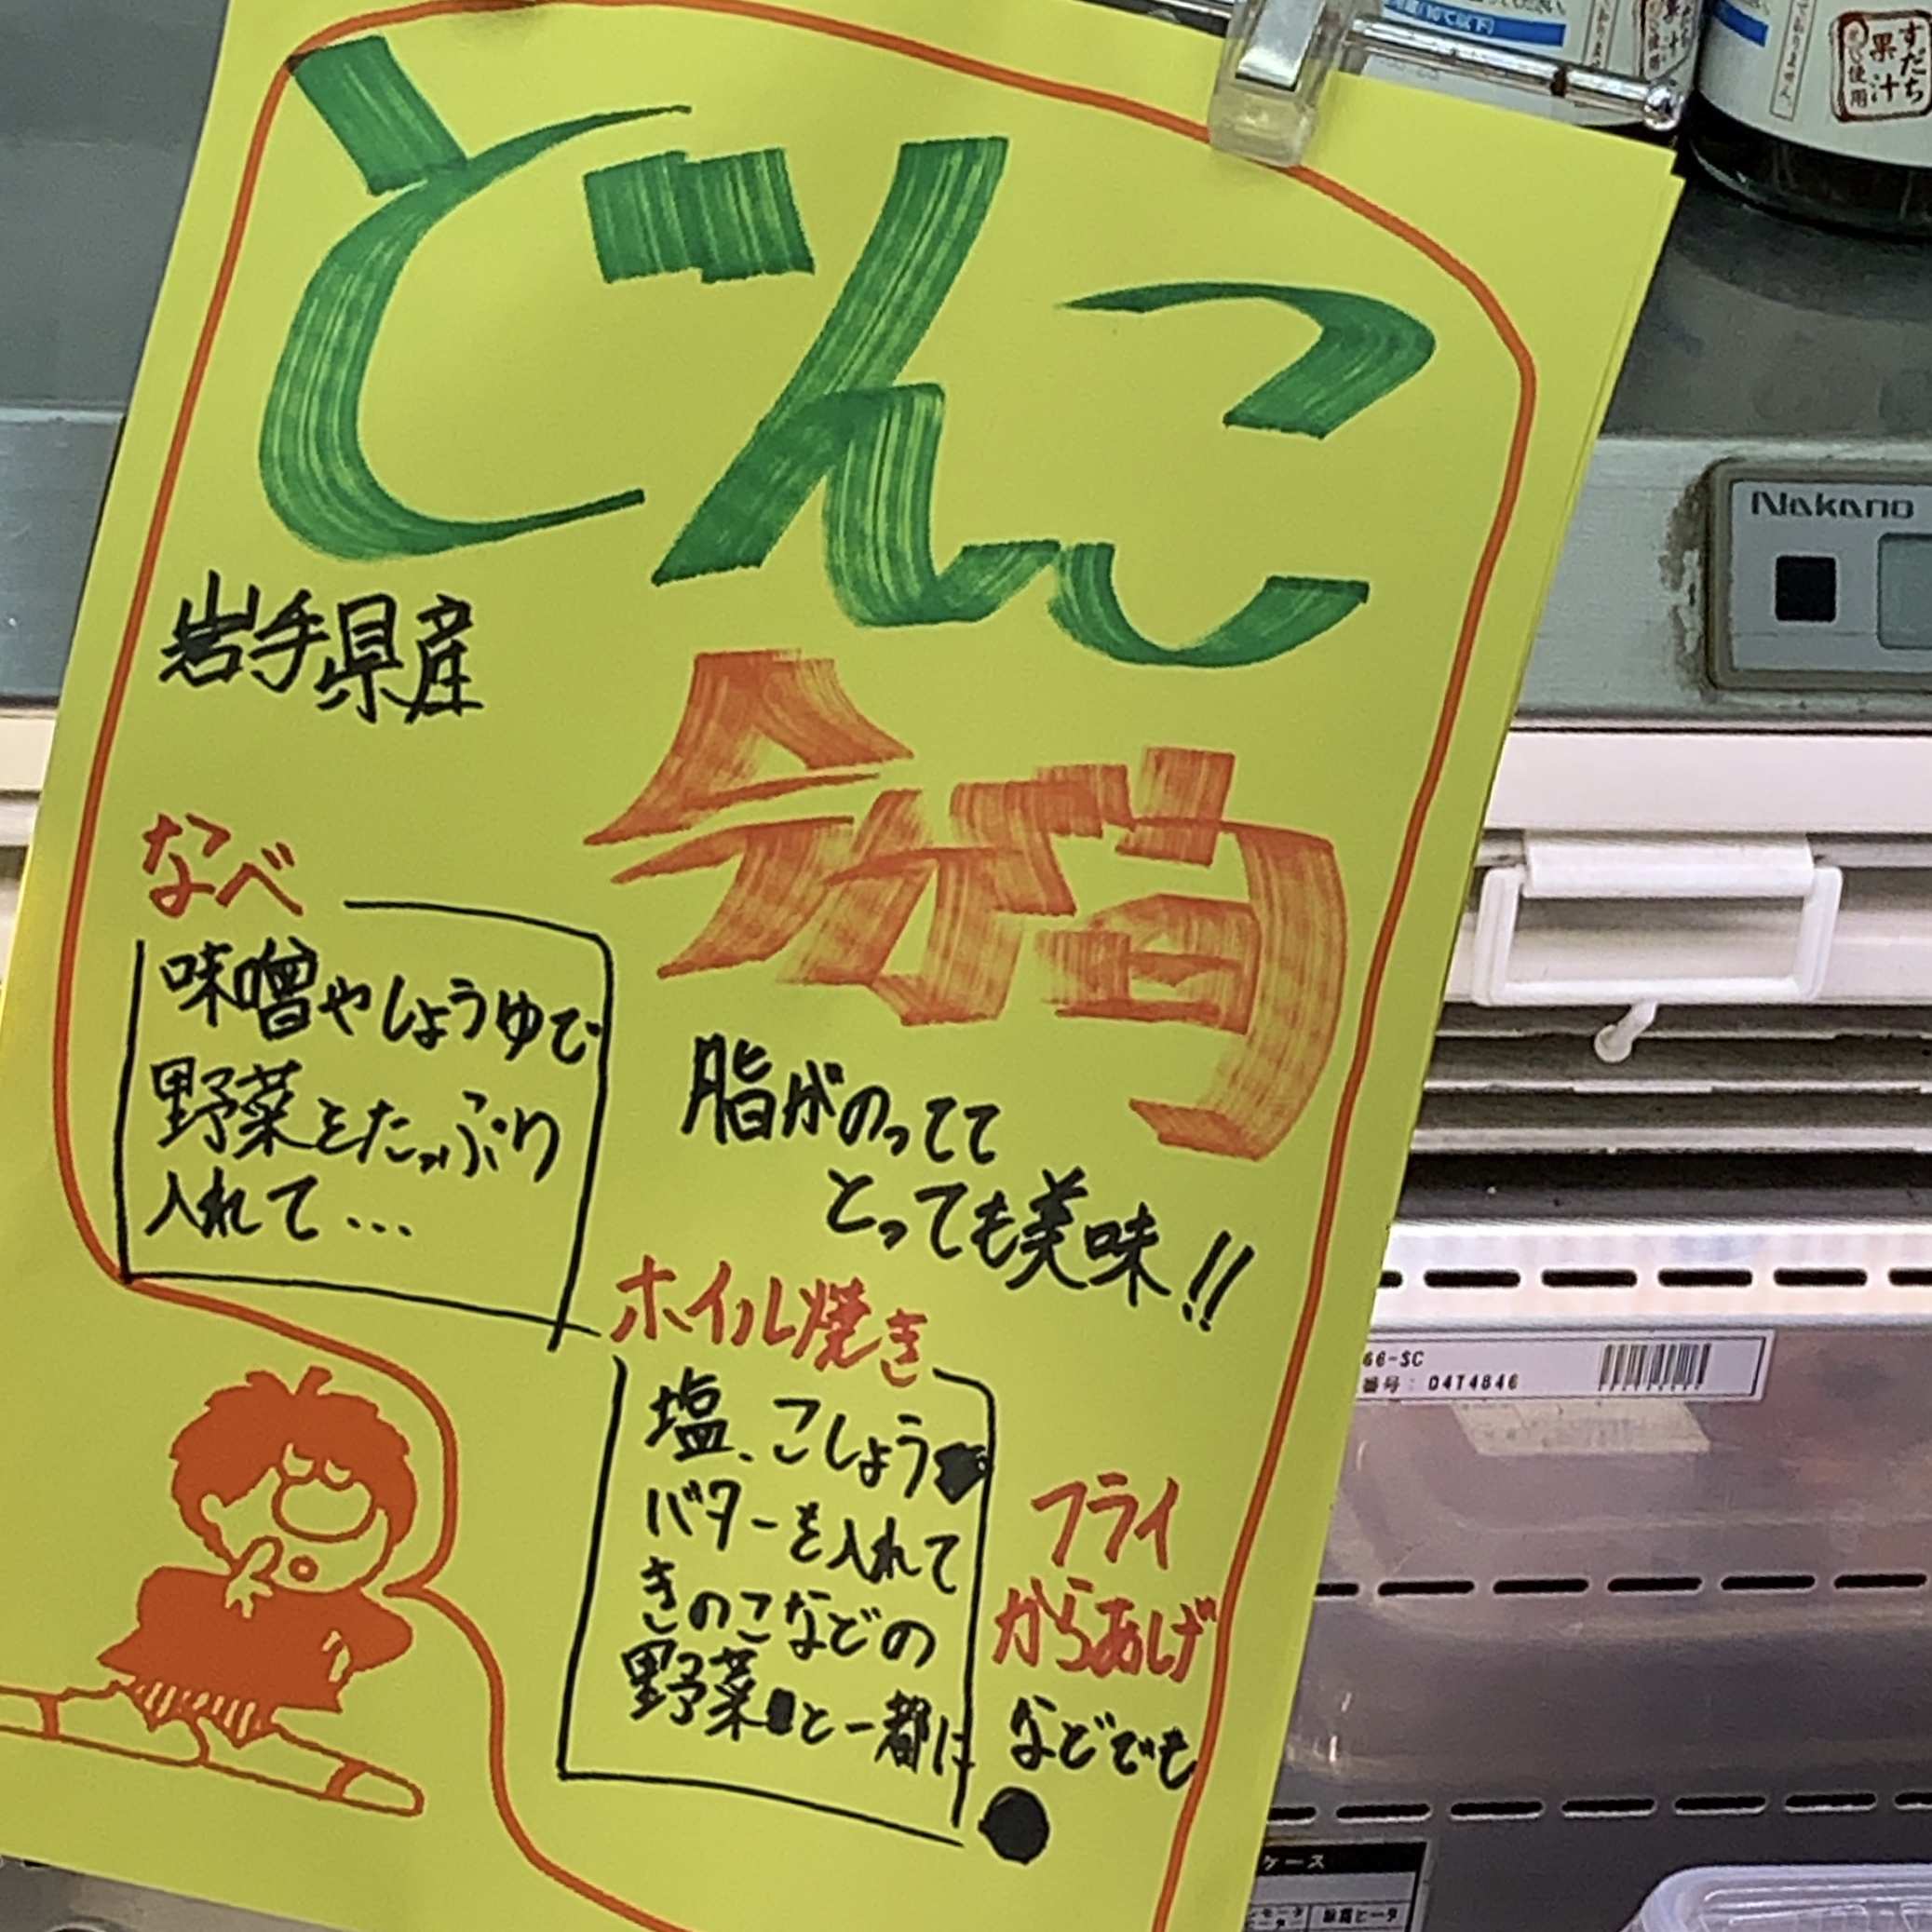 どんこ
岩手県産
今が旬
なべ
味噌やしょうゆで
野菜をたっぷり
入れて...
脂がのってて
とっても美味!!
ホイル焼き
塩、こしょう
バターを入れて
きのこなどの
野菜と一都に
フライ
からあげ
などでも
すだち
果汁
使用
Nakano
66-SC
番号: 04T4846
ケース
除霜ヒータ